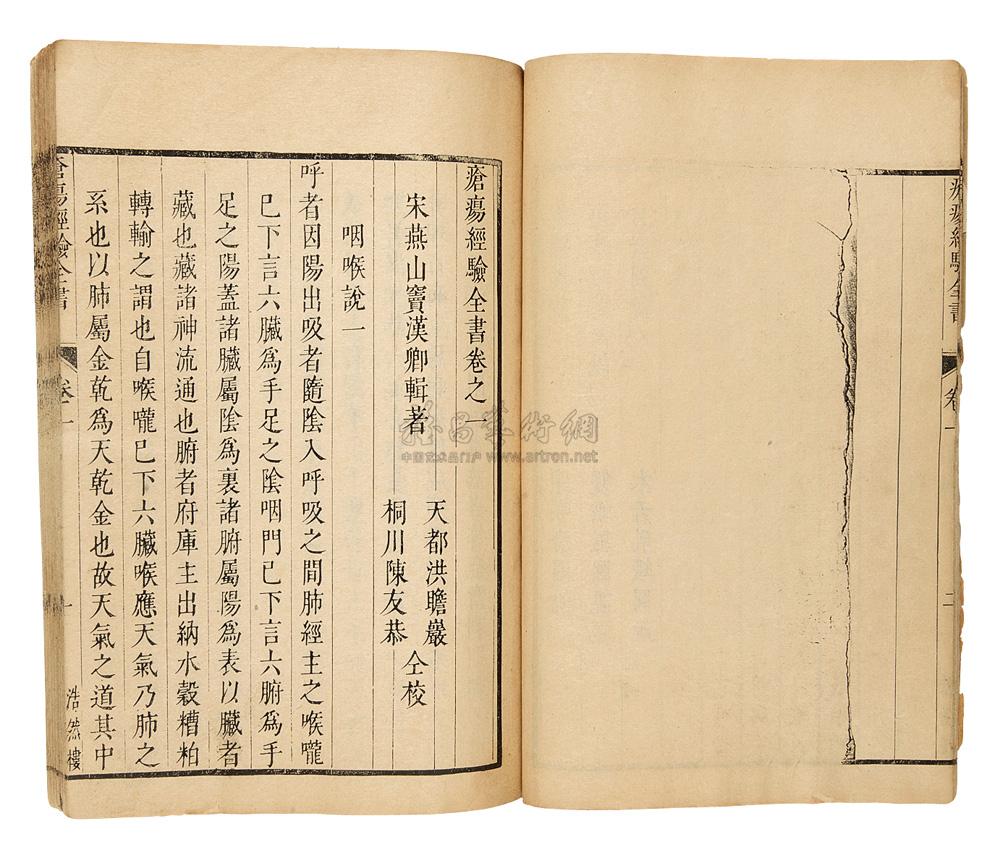 瘡瘍經驗全書
卷一
二
瘡瘍經驗全書卷之一
宋燕山竇漢卿輯著
天都洪瞻巖
桐川陳友恭
仝校
咽喉說一
呼者因陽出吸者隨陰入呼吸之間肺經主之喉嚨
已下言六臟為手足之陰咽門已下言六腑為手
足之陽蓋諸臟屬陰為裏諸腑屬陽為表以臟者
藏也藏諸神流通也腑者府庫主出納水穀糟粕
轉輸之謂也自喉嚨已下六臟喉應天氣乃肺之
系也以肺屬金乾為天乾金也故天氣之道其中
瘡瘍經驗全書
卷一
一
浩然樓
雅昌藝術網
中国艺术品门户 www.artron.net